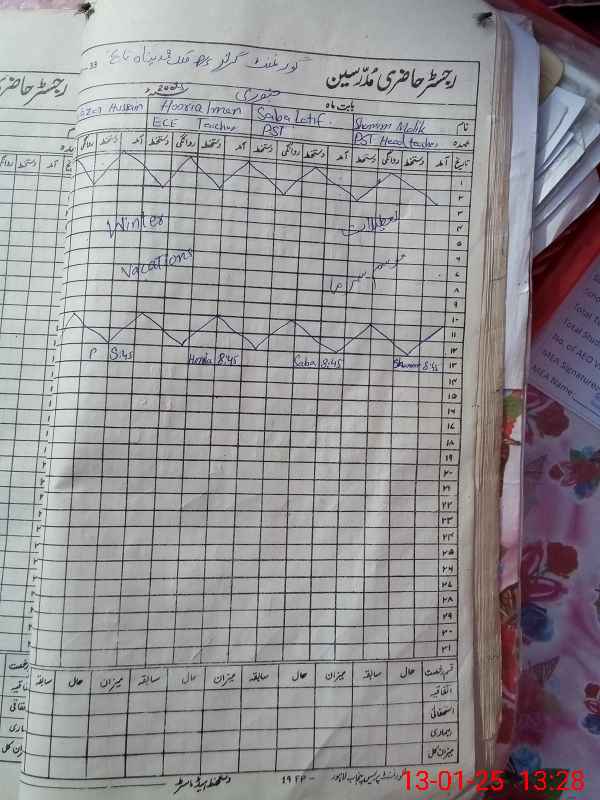 رجسٹر حاضری مدرّسین
جنوری
بابت ماہ
نام Shamim Malik Saba Latif Hooria Iman Hussain
عہدہ PST Head teacher PST ECE Teacher
تاریخ آمد دستخط روانگی دستخط آمد دستخط روانگی دستخط آمد دستخط روانگی دستخط آمد دستخط روانگی
۱
۲
۳
Winter تعطیلات ۴
۵
Vacations موسم سرما ۶
۷
۸
۹
۱۰
۱۱
۱۲
P 8:45 Hooria 8:45 Saba 8:45 Shamim 8:45 ۱۳
۱۴
۱۵
۱۶
۱۷
۱۸
۱۹
۲۰
۲۱
۲۲
۲۳
۲۴
۲۵
۲۶
۲۷
۲۸
۲۹
۳۰
۳۱
قسم رخصت حال سابقہ میزان حال سابقہ میزان حال سابقہ میزان حال سابقہ
اتفاقیہ
استحقاقی
بیماری
میزان کل
دستخط ہیڈ ماسٹر
19 FP -
Total Stud
No. of AEO V
MEA Signature
MEA Name
13-01-25 13:28